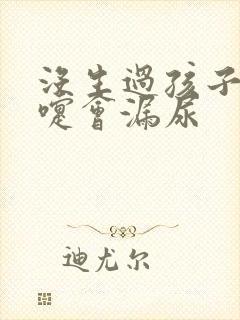 没生過孩子
嚏會漏尿
迪尤尔